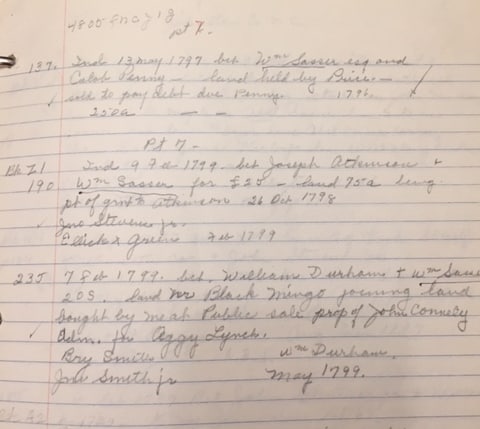 pt 7.
137. Ind 13 May 1797 bet Wm Sasser esq and
Caleb Penny — land held by Price. —
sold to pay debt due Penny. 1796.
250a — —
Pt 7 —
Bk Z1 Ind 9 Feb 1799 bet Joseph Atkinson +
190 Wm Sasser for £20 — land 75a being
pt of grnt to Atkinson 26 Oct 1798
Jno Stevens jr.
Ellick x Green Feb 1799
235 7 Feb 1799. bet. William Durham + Wm Sasse
20 S. land nr Black Mingo joining land
bought by me at Public sale prop of John Connely
Adm. for Aggy Lynch.
Bry Smith Wm Durham.
Jno Smith jr May 1799.